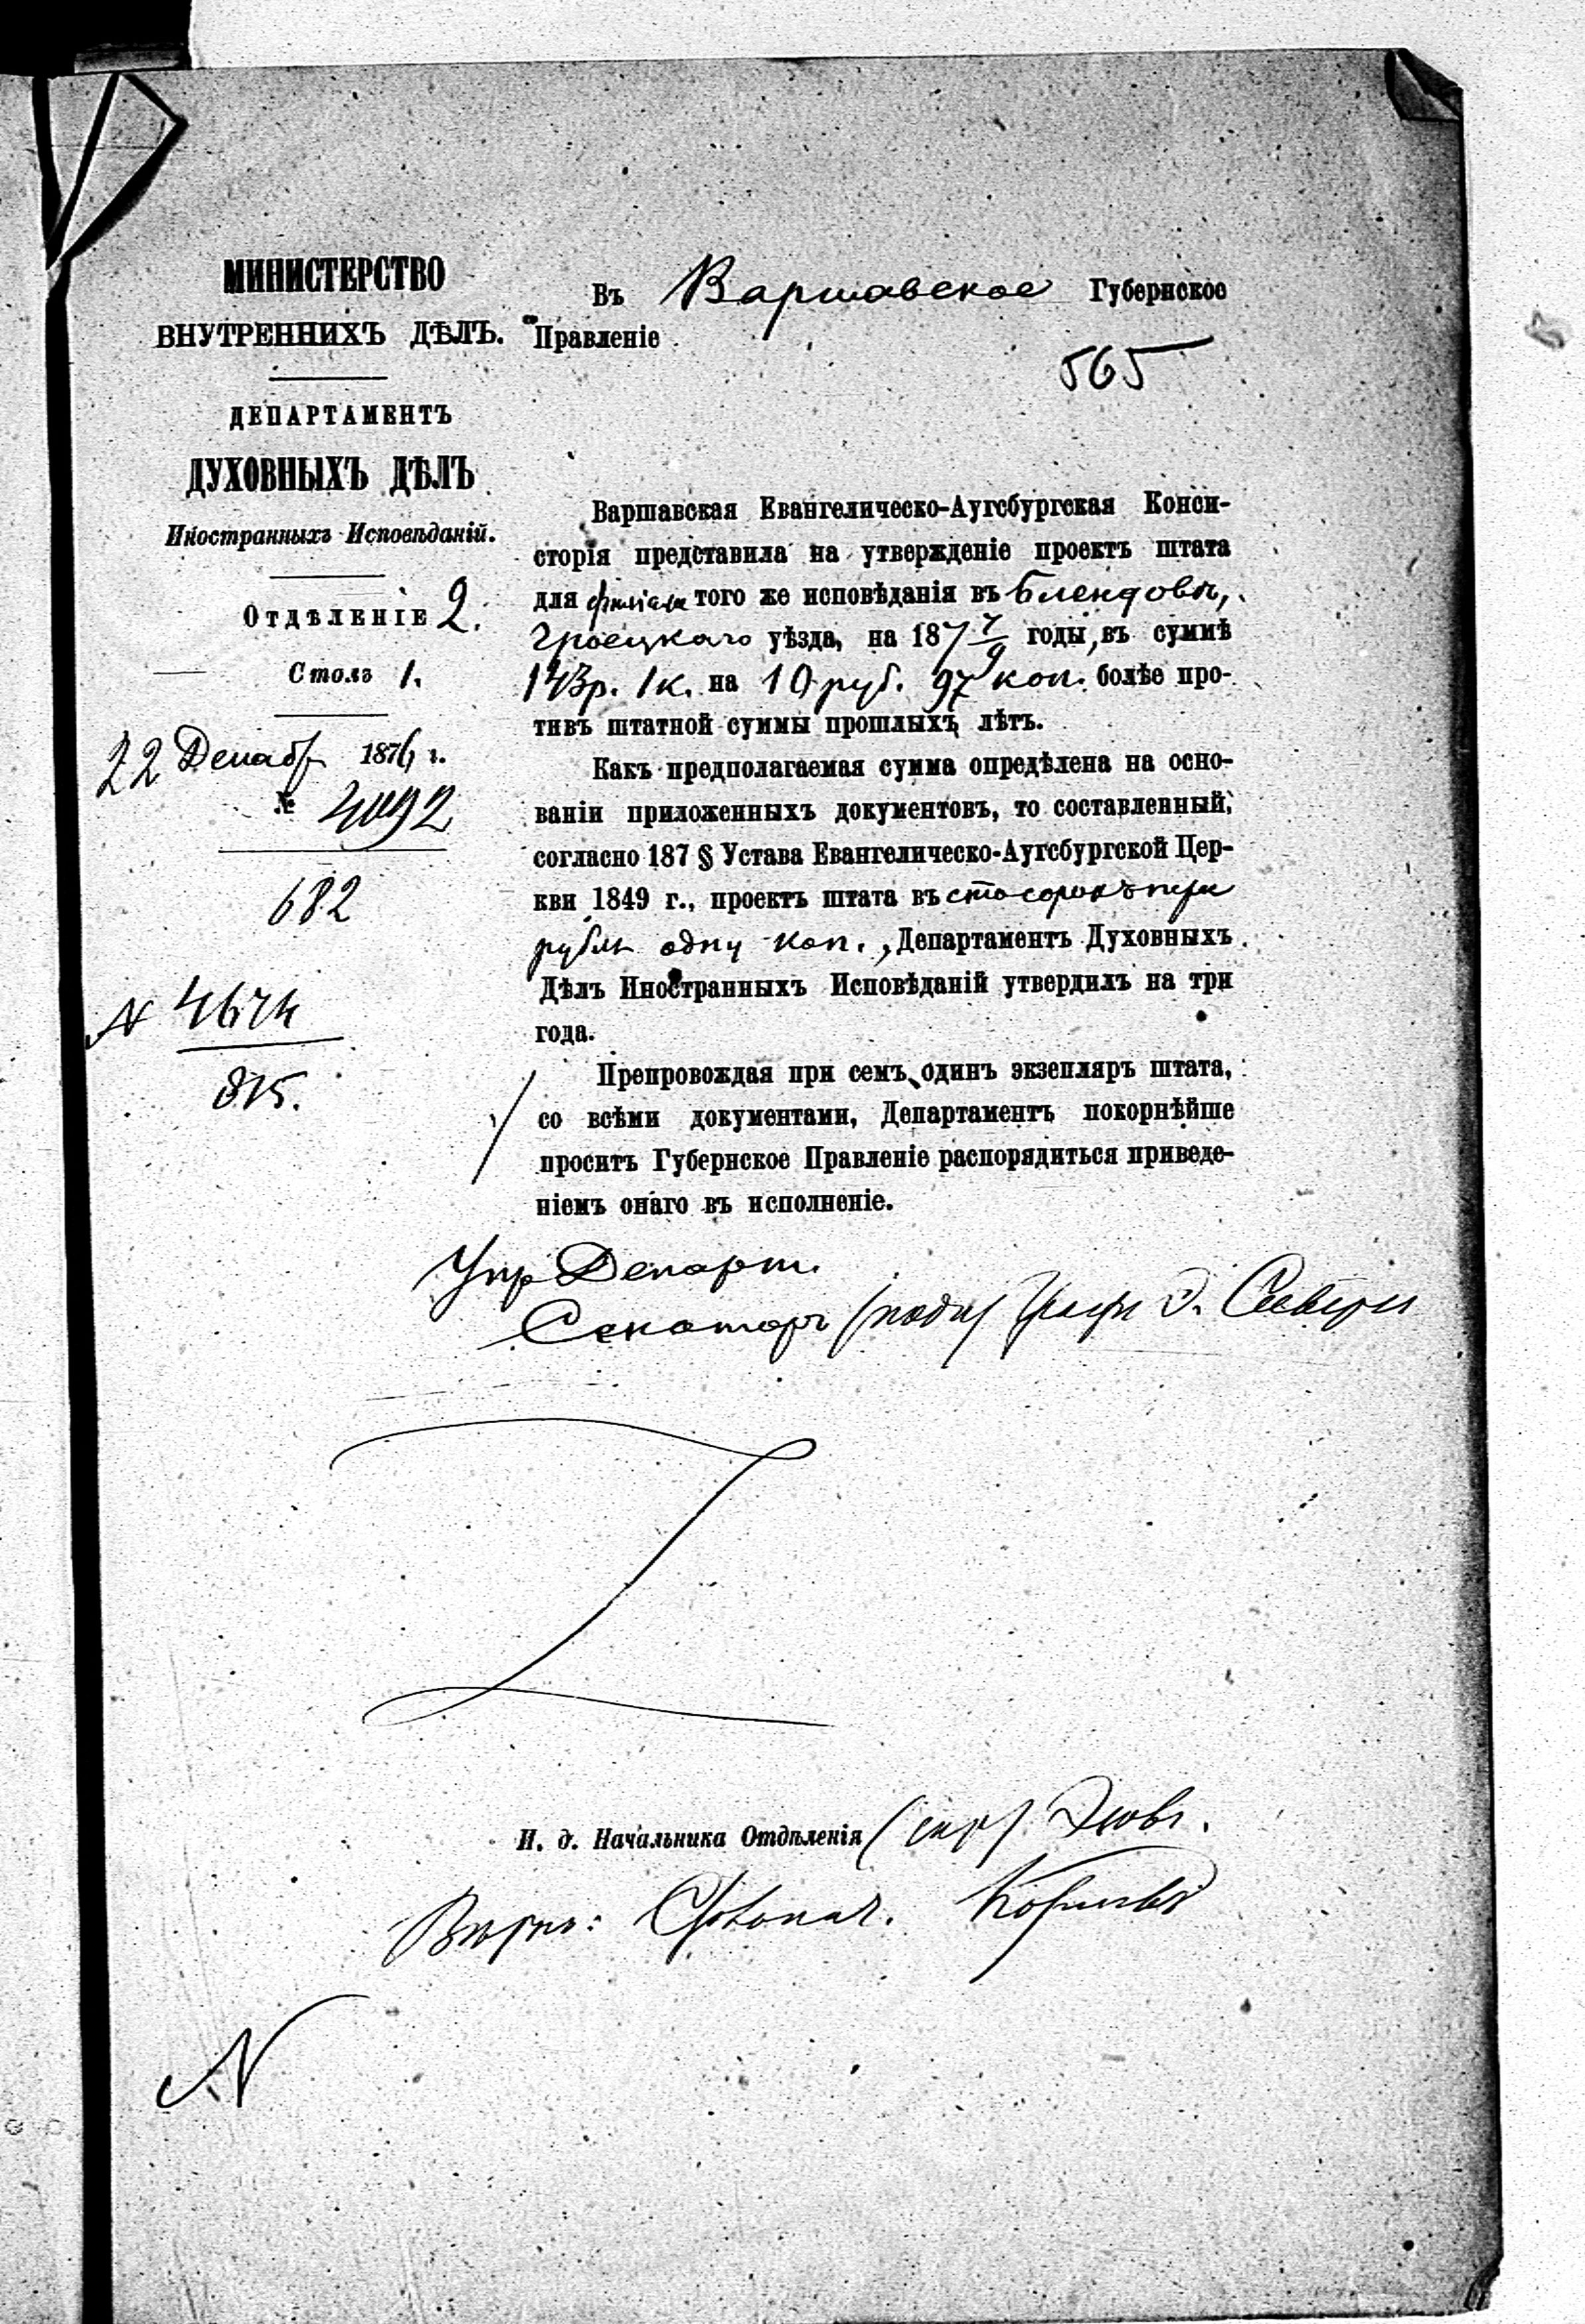 МИНИСТЕРСТВО
ВНУТРЕННИХЪ ДѢЛЪ.
ДЕПАРТАМЕНТЪ
ДУХОВНЫХЪ ДѢЛЪ
Иностранныхъ Исповѣданій.
Отдѣленіе 2.
Столъ 1.
22 Декабр 1876 г.
№ 4092
682
N 4674
815.
Въ Варшавское Губернское
Правленіе
565
Варшавская Евангелическо-Аугсбургская Конси-
сторія представила на утвержденіе проектъ штата
для филіала того же исповѣданія въ Блендовѣ,
Гроецкаго уѣзда, на 187 7/9 годы, въ суммѣ
143р. 1к. на 10 руб. 97 коп. болѣе про-
тивъ штатной суммы прошлыхъ лѣтъ.
Какъ предполагаемая сумма опредѣлена на осно-
ваніи приложенныхъ документовъ, то составленный,
согласно 187 § Устава Евангелическо-Аугсбургской Цер-
кви 1849 г., проектъ штата въ сто сорокъ три
рубля одну коп., Департаментъ Духовныхъ
Дѣлъ Иностранныхъ Исповѣданій утвердилъ на три
года.
Препровождая при семъ, одинъ экзепляръ штата,
со всѣми документами, Департаментъ покорнѣйше
проситъ Губернское Правленіе распорядиться приведе-
ніемъ онаго въ исполненіе.
Упр Департ.
Сенаторъ (подп) Графъ Э. Сиверсъ
И. д. Начальника Отдѣленія (скр)
Вѣрно:
N